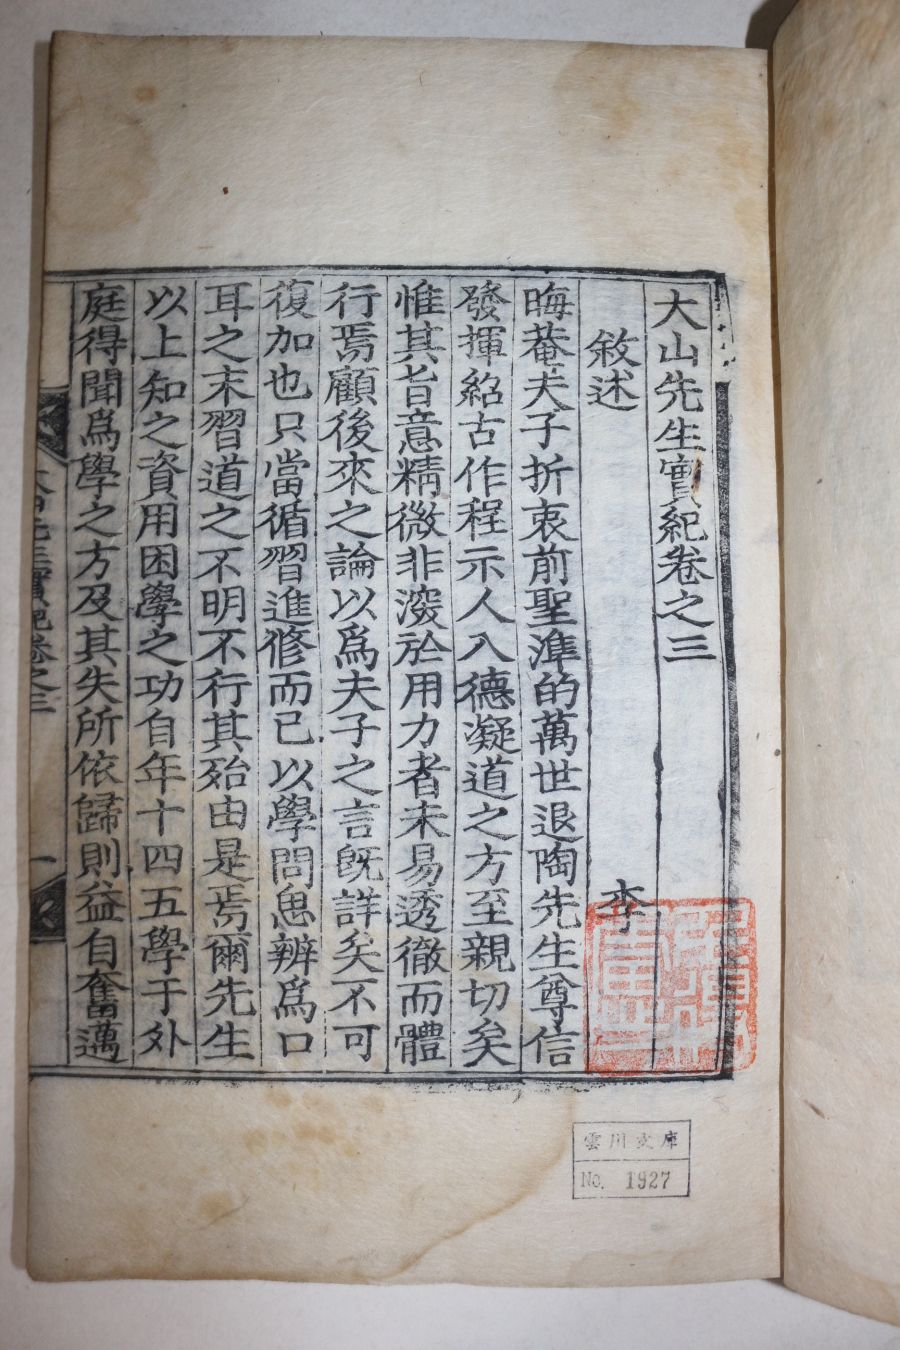 大山先生實紀卷之三
敘述
李
晦菴夫子折衷前聖準的萬世退陶先生尊信
發揮紹古作程示人入德凝道之方至親切矣
惟其旨意精微非深於用力者未易透徹而體
行焉顧後來之論以爲夫子之言旣詳矣不可
復加也只當循習進修而已以學問思辨爲口
耳之末習道之不明不行其殆由是焉爾先生
以上知之資用困學之功自年十四五學于外
庭得聞爲學之方及其失所依歸則益自奮邁
大山先生實紀卷之三
一
雲川文庫
No. 1927